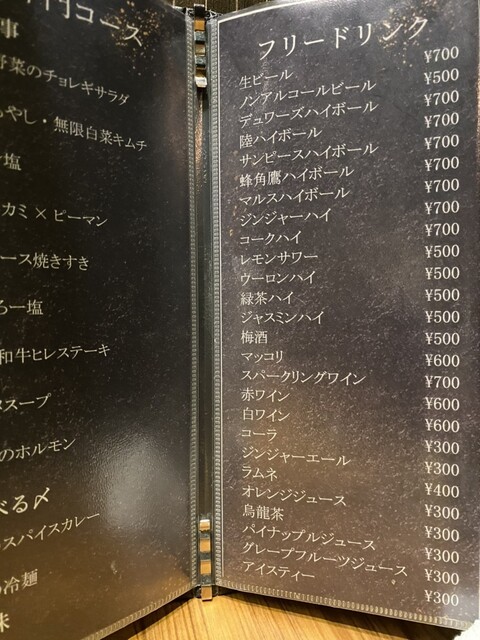 円コース
事
野菜のチョレギサラダ
やし・無限白菜キムチ
塩
カミ×ピーマン
ース焼きすき
ろー塩
和牛ヒレステーキ
スープ
のホルモン
べる〆
スパイスカレー
冷麺
味
フリードリンク
生ビール ¥700
ノンアルコールビール ¥500
デュワーズハイボール ¥700
陸ハイボール ¥700
サンピースハイボール ¥700
蜂角鷹ハイボール ¥700
マルスハイボール ¥700
ジンジャーハイ ¥700
コークハイ ¥700
レモンサワー ¥500
ウーロンハイ ¥500
緑茶ハイ ¥500
ジャスミンハイ ¥500
梅酒 ¥500
マッコリ ¥600
スパークリングワイン ¥700
赤ワイン ¥600
白ワイン ¥600
コーラ ¥300
ジンジャーエール ¥300
ラムネ ¥400
オレンジジュース ¥300
烏龍茶 ¥300
パイナップルジュース ¥300
グレープフルーツジュース ¥300
アイスティー ¥300